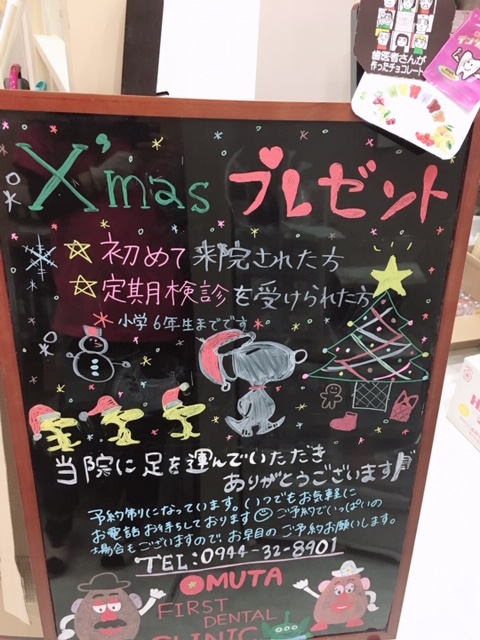 歯医者さんが
作ったチョコレート
X'mas プレゼント
☆初めて来院された方
☆定期検診を受けられた方
*小学6年生までです
当院に足を運んでいただき
ありがとうございます
予約制になっています。いつでもお気軽に
お電話お待ちしております☺ご予約でいっぱいの
場合もございますので、お早目のご予約お願いします。
TEL:0944-32-8901
OMUTA
FIRST
DENTAL
CLINIC